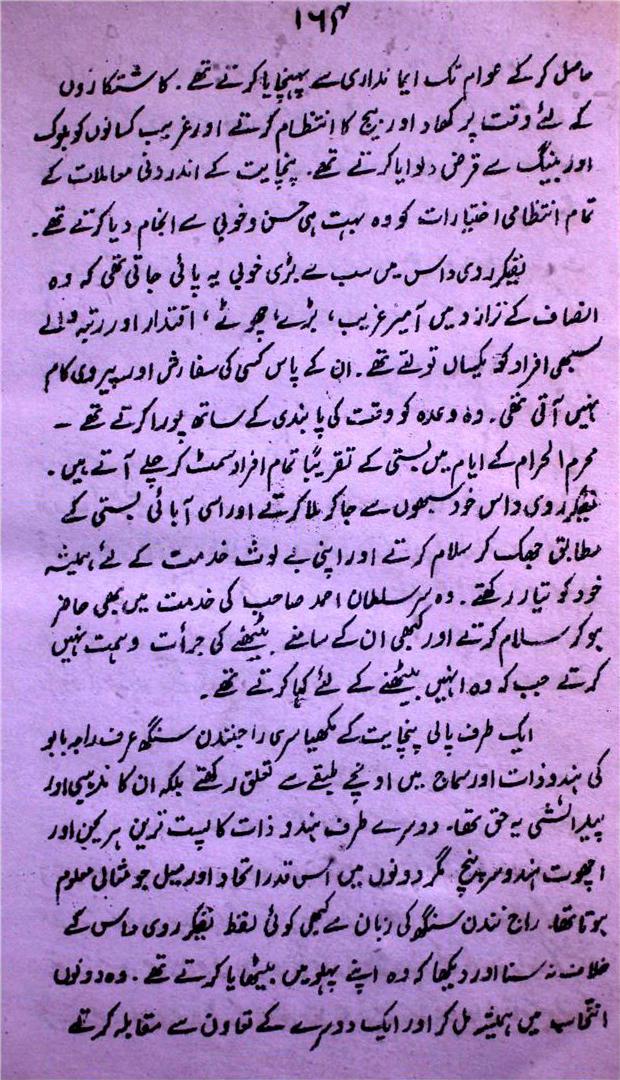 ۱۶۴
حاصل کرکے عوام تک ایمانداری سے پہنچایا کرتے تھے۔ کاشتکاروں
کے لئے وقت پر کھاد اور بیج کا انتظام کرتے اور غریب کسانوں کو بلوک
اور بینک سے قرض دلوایا کرتے تھے۔ پنچایت کے اندرونی معاملات کے
تمام انتظامی اختیارات کو وہ بہت ہی حسن وخوبی سے انجام دیا کرتے تھے۔
روی داس میں سب سے بڑی خوبی یہ پائی جاتی تھی کہ وہ
انصاف کے ترازو میں امیر غریب، بڑے چھوٹے، اقتدار اور رتبہ والے
سبھی افراد کو یکساں تولتے تھے۔ ان کے پاس کسی کی سفارش اور پیروی کام
نہیں آتی تھی۔ وہ وعدہ کو وقت کی پابندی کے ساتھ پورا کرتے تھے ۔
محرم الحرام کے ایام میں بستی کے تقریباً تمام افراد سمٹ کر چلے آتے ہیں۔
روی داس خود سبھوں سے جاکر ملا کرتے اور اسی آبائی بستی کے
مطابق جھک کر سلام کرتے اور اپنی بے لوث خدمت کے لئے ہمیشہ
خود کو تیار رکھتے۔ وہ سر سلطان احمد صاحب کی خدمت میں بھی حاضر
ہوکر سلام کرتے اور کبھی ان کے سامنے بیٹھنے کی جرأت وہمت نہیں
کرتے جب کہ وہ انہیں بیٹھنے کے لئے کہا کرتے تھے۔
ایک طرف پالی پنچایت کے مکھیا سری راجنندن سنگھ عرف راجہ بابو
کی ہندو ذات اور سماج میں اونچے طبقے سے تعلق رکھتے بلکہ ان کا مذہبی اور
پیدائشی یہ حق تھا۔ دوسرے طرف ہندو ذات کا پست ترین ہریجن اور
اچھوت ہندو سرپنچ مگر دونوں میں اس قدر اتحاد اور میل جو مثالی معلوم
ہوتا تھا۔ راج نندن سنگھ کی زبان سے کبھی کوئی لفظ روی داس کے
خلاف نہ سنا اور دیکھا کہ وہ اپنے پہلو میں بیٹھایا کرتے تھے۔ وہ دونوں
انتخاب میں ہمیشہ مل کر اور ایک دوسرے کے تعاون سے مقابلہ کرتے